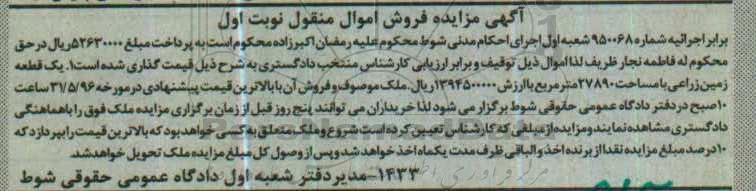 آگهی مزایده فروش اموال منقول نوبت اول
برابر اجرائیه شماره ۹۵۰۰۶۸ شعبه اول اجرای احکام مدنی شوط محکوم علیه رمضان اکبرزاده محکوم است به پرداخت مبلغ ۵۲۶۳۰۰۰۰ ریال در حق
محکوم له فاطمه نجار ظریف لذا اموال ذیل توقیف و برابر ارزیابی کارشناس منتخب دادگستری به شرح ذیل قیمت گذاری شده است ۱. یک قطعه
زمین زراعی با مساحت ۲۷۸۹۰ متر مربع با ارزش ۱۳۹۴۵۰۰۰۰ ریال. ملک موصوف و فروش آن با بالاترین قیمت پیشنهادی در مورخه ۳۱/۵/۹۶ ساعت
۱۰ صبح در دفتر دادگاه عمومی حقوقی شوط برگزار می شود لذا خریداران می توانند پنج روز قبل از زمان برگزاری مزایده ملک فوق را با هماهنگی
دادگستری مشاهده نمایند و مزایده از مبلغی که کارشناس تعیین کرده است شروع و ملک متعلق به کسی خواهد بود که بالاترین قیمت را بپردازد که
۱۰ درصد مبلغ مزایده نقدا از برنده اخذ و الباقی ظرف مدت یکماه اخذ خواهد شد و پس از وصول کل مبلغ مزایده ملک تحویل خواهد شد.
۱۴۳۳- مدیر دفتر شعبه اول دادگاه عمومی حقوقی شوط